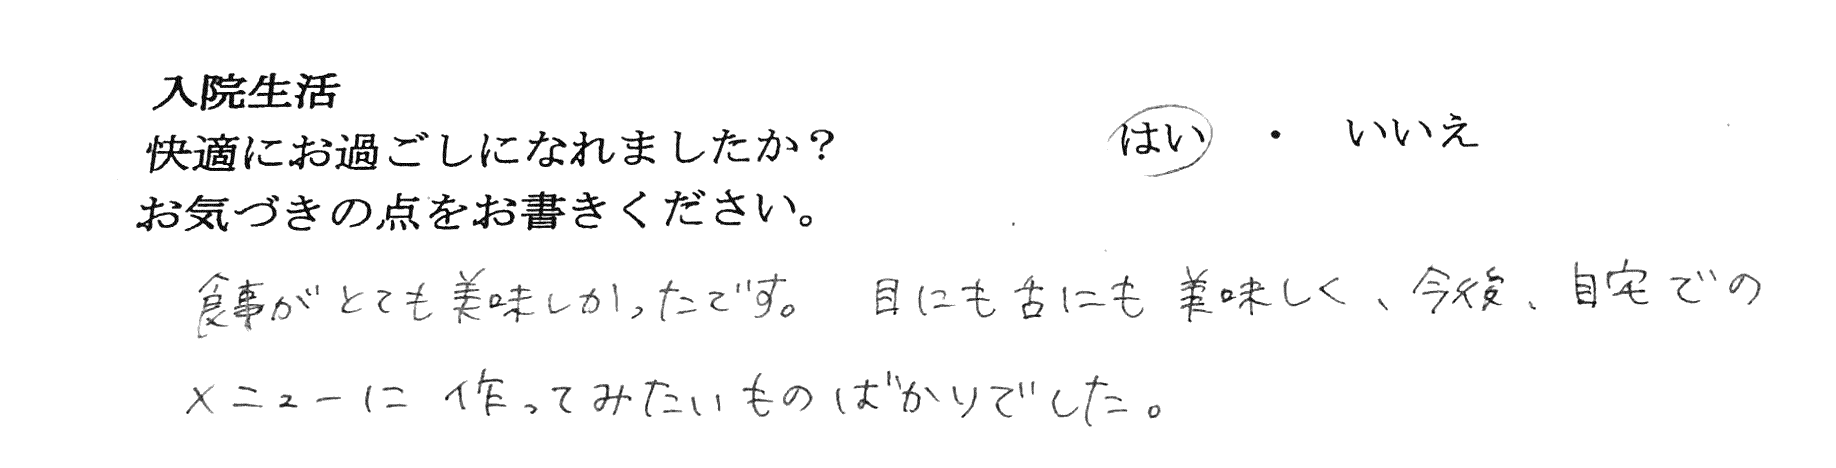 入院生活
快適にお過ごしになれましたか？ はい ・ いいえ
お気づきの点をお書きください。
食事がとても美味しかったです。 目にも舌にも美味しく、今後、自宅での
メニューに作ってみたいものばかりでした。